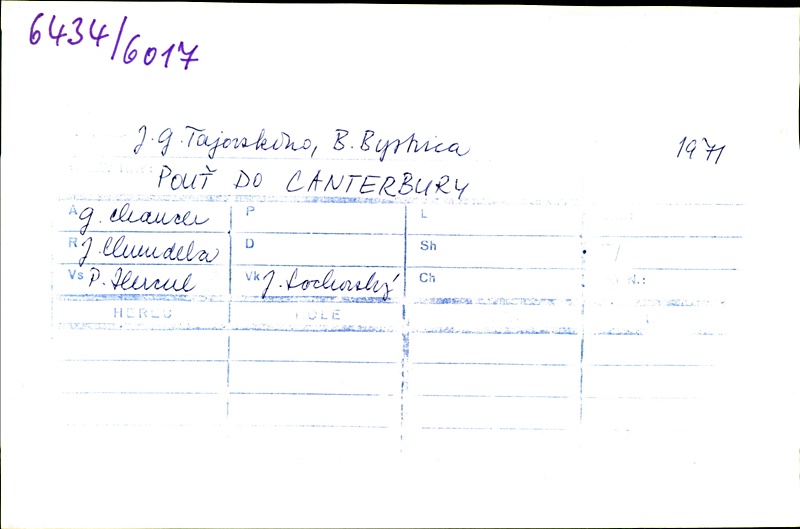 6434/6017
J. G. Tajovského, B. Bystrica 1971
POUŤ DO CANTERBURY
A G. Chaucer P L
R J. Chundela D Sh
Vs P. Hercel Vk J. Lochovský Ch N.:
HEREC ROLE